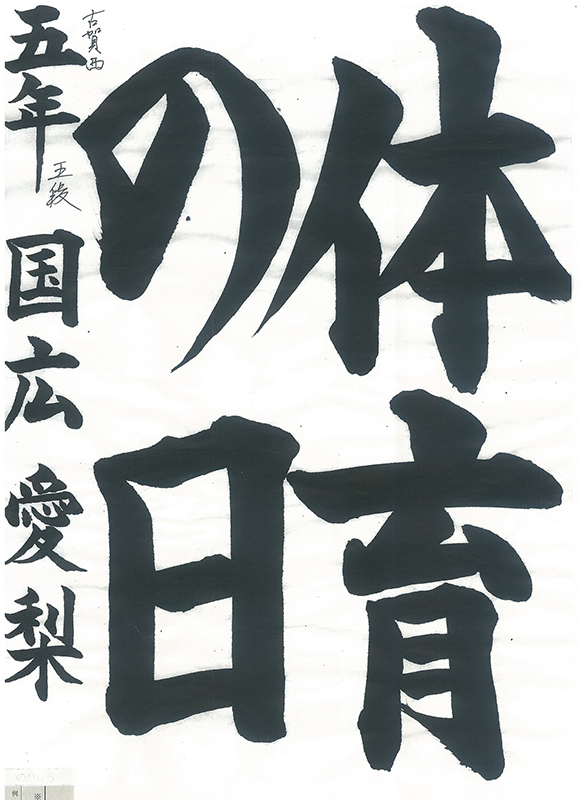 体育
の日
古賀西
五年 国広 愛梨
玉綾